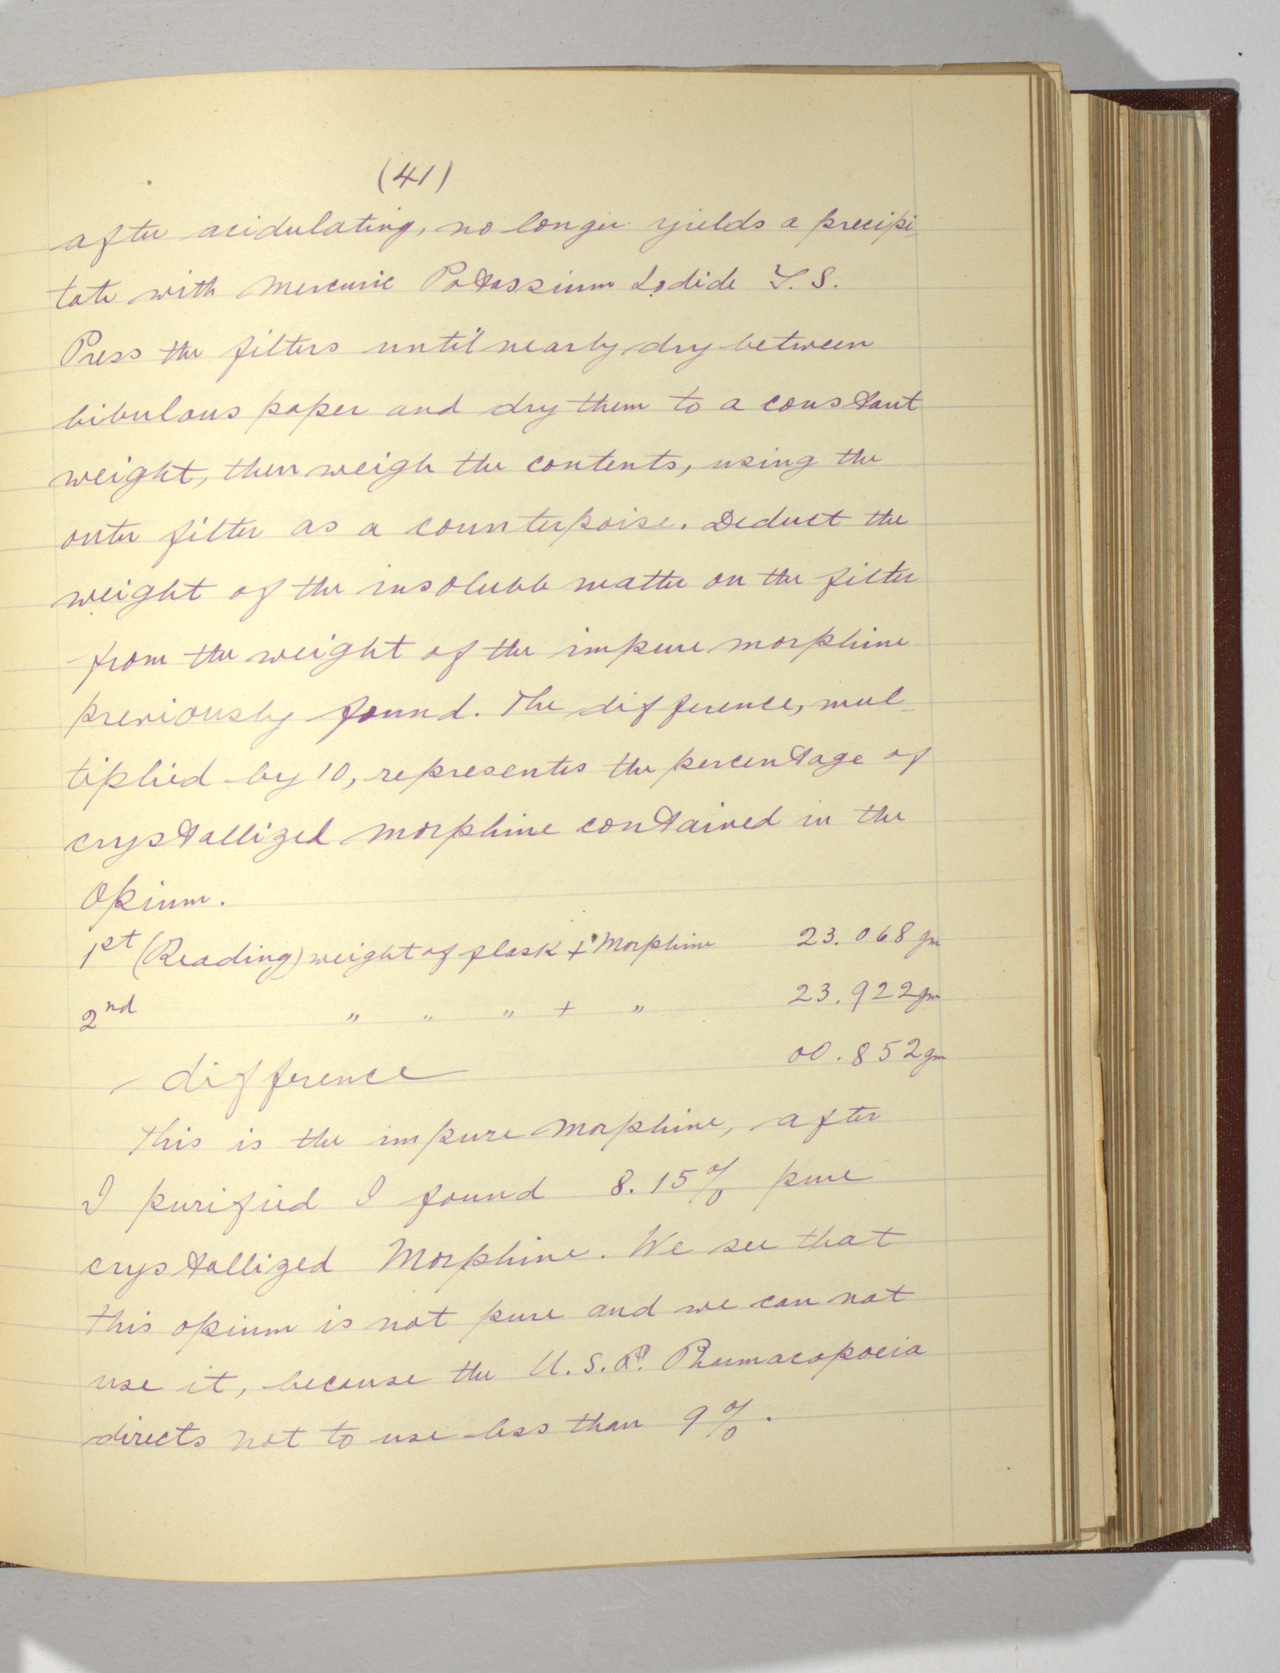 (41)
after acidulating, no longer yields a precipi-
tate with Mercuric Potassium Iodide T. S.
Press the filters until nearly dry between
bibulous paper and dry them to a constant
weight, then weigh the contents, using the
outer filter as a counterpoise. Deduct the
weight of the insoluble matter on the filter
from the weight of the impure morphine
previously found. The difference, mul-
tiplied by 10, represents the percentage of
crystallized morphine contained in the
Opium.
1st (Reading) weight of flask + Morphine 23.068 gm
2nd " " " + " 23.922 gm
difference 00.852 gm
This is the impure Morphine, after
I purified I found 8.15% pure
crystallized Morphine. We see that
this opium is not pure and we can not
use it, because the U.S.P. Pharmacopoeia
directs not to use less than 9%.